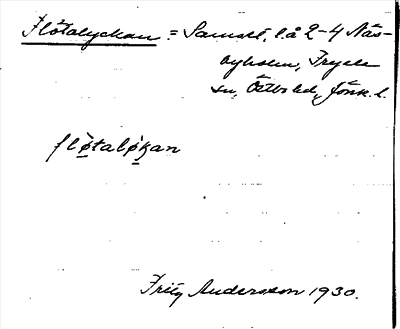 Flötalyckan = Samset. l. å 2-4 Näs-
byholm, Tryse
sn, Östbo hd, Jönk. l.
fløtaløkan
Fritz Andersson 1930.